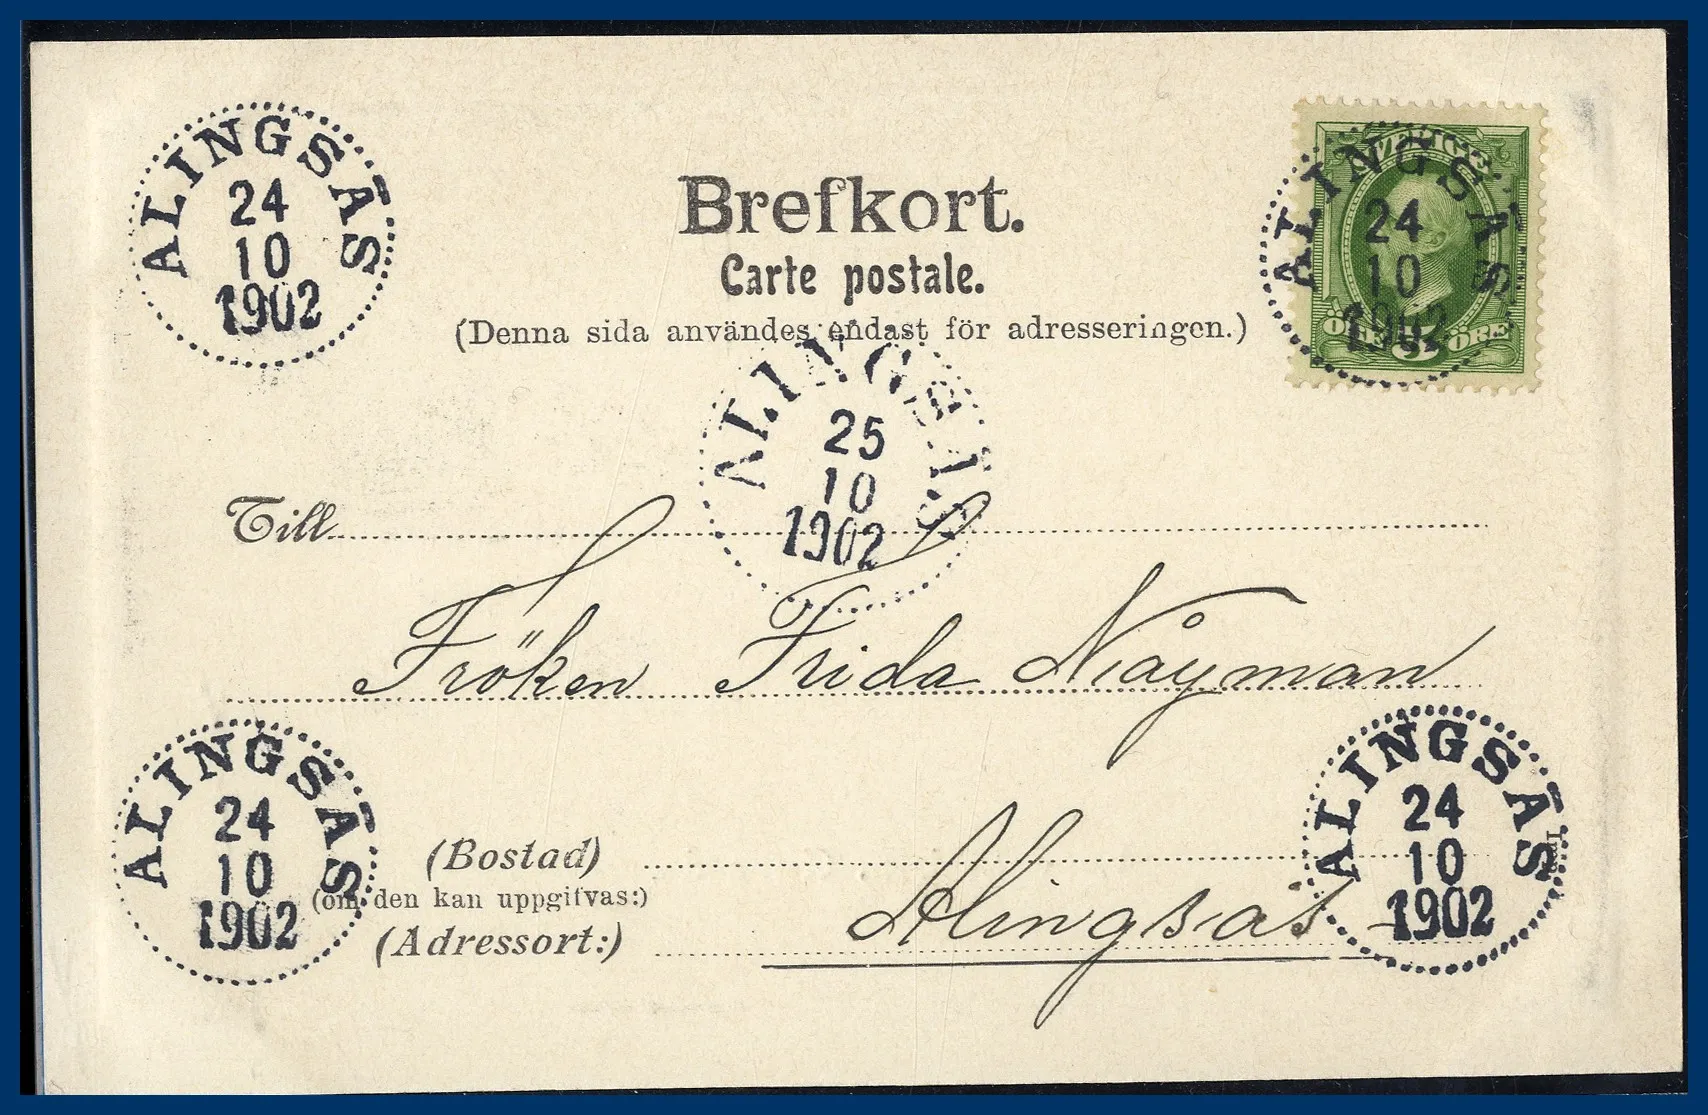 ALINGSÅS
24
10
1902
SVERIGE
ÖRE 5 ÖRE
ALINGSÅS
24
10
1902
Brefkort.
Carte postale.
(Denna sida användes endast för adresseringen.)
ALINGSÅS
25
10
1902
Till
Fröken Frida Nåyman
ALINGSÅS
24
10
1902
ALINGSÅS
24
10
1902
(Bostad)
(om den kan uppgifvas:)
(Adressort:)
Alingsås